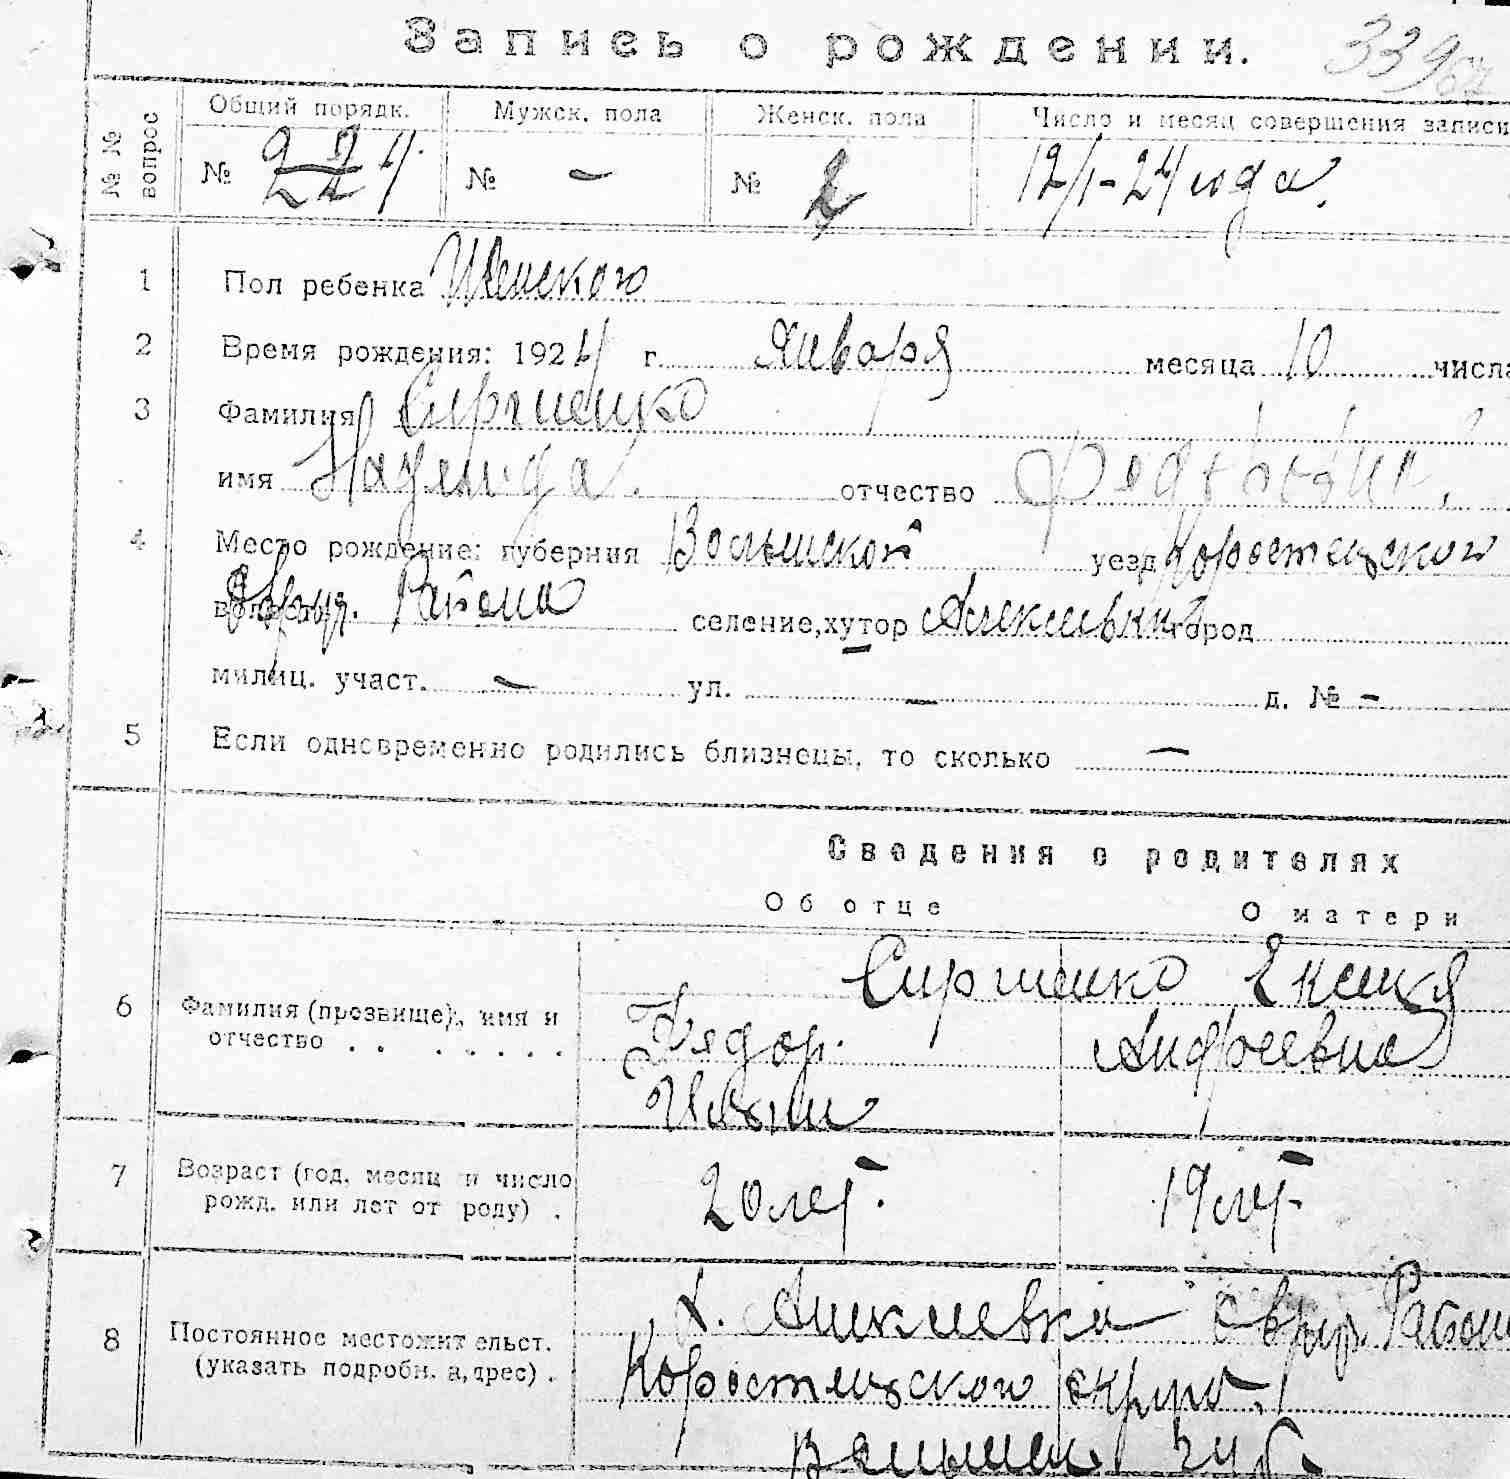 Запись о рождении.
339
№ № вопрос
Общий порядк. Мужск. пола Женск. пола Число и месяц совершения записи
№ № – № 2 12/I-24 года.
1 Пол ребенка Женского
2 Время рождения: 1924 г. Января месяца 10 числа
3 Фамилия Сиргиенко
имя Надежда. отчество
4 Место рождение: губерния Волынской уезд Коростенского
Района селение, хутор город
милиц. участ. – ул. – д. № -
5 Если одновременно родились близнецы, то сколько –
Сведения о родителях
Об отце О матери
6 Фамилия (прозвище), имя и отчество . . . . . . .
Сиргиенко
Федор. Андреевна
7 Возраст (год, месяц и число рожд. или лет от роду) .
20 лет. 19 лет
8 Постоянное местожительст. (указать подробн. адрес) .
х.
Коростенского округа.
Волынск губ.